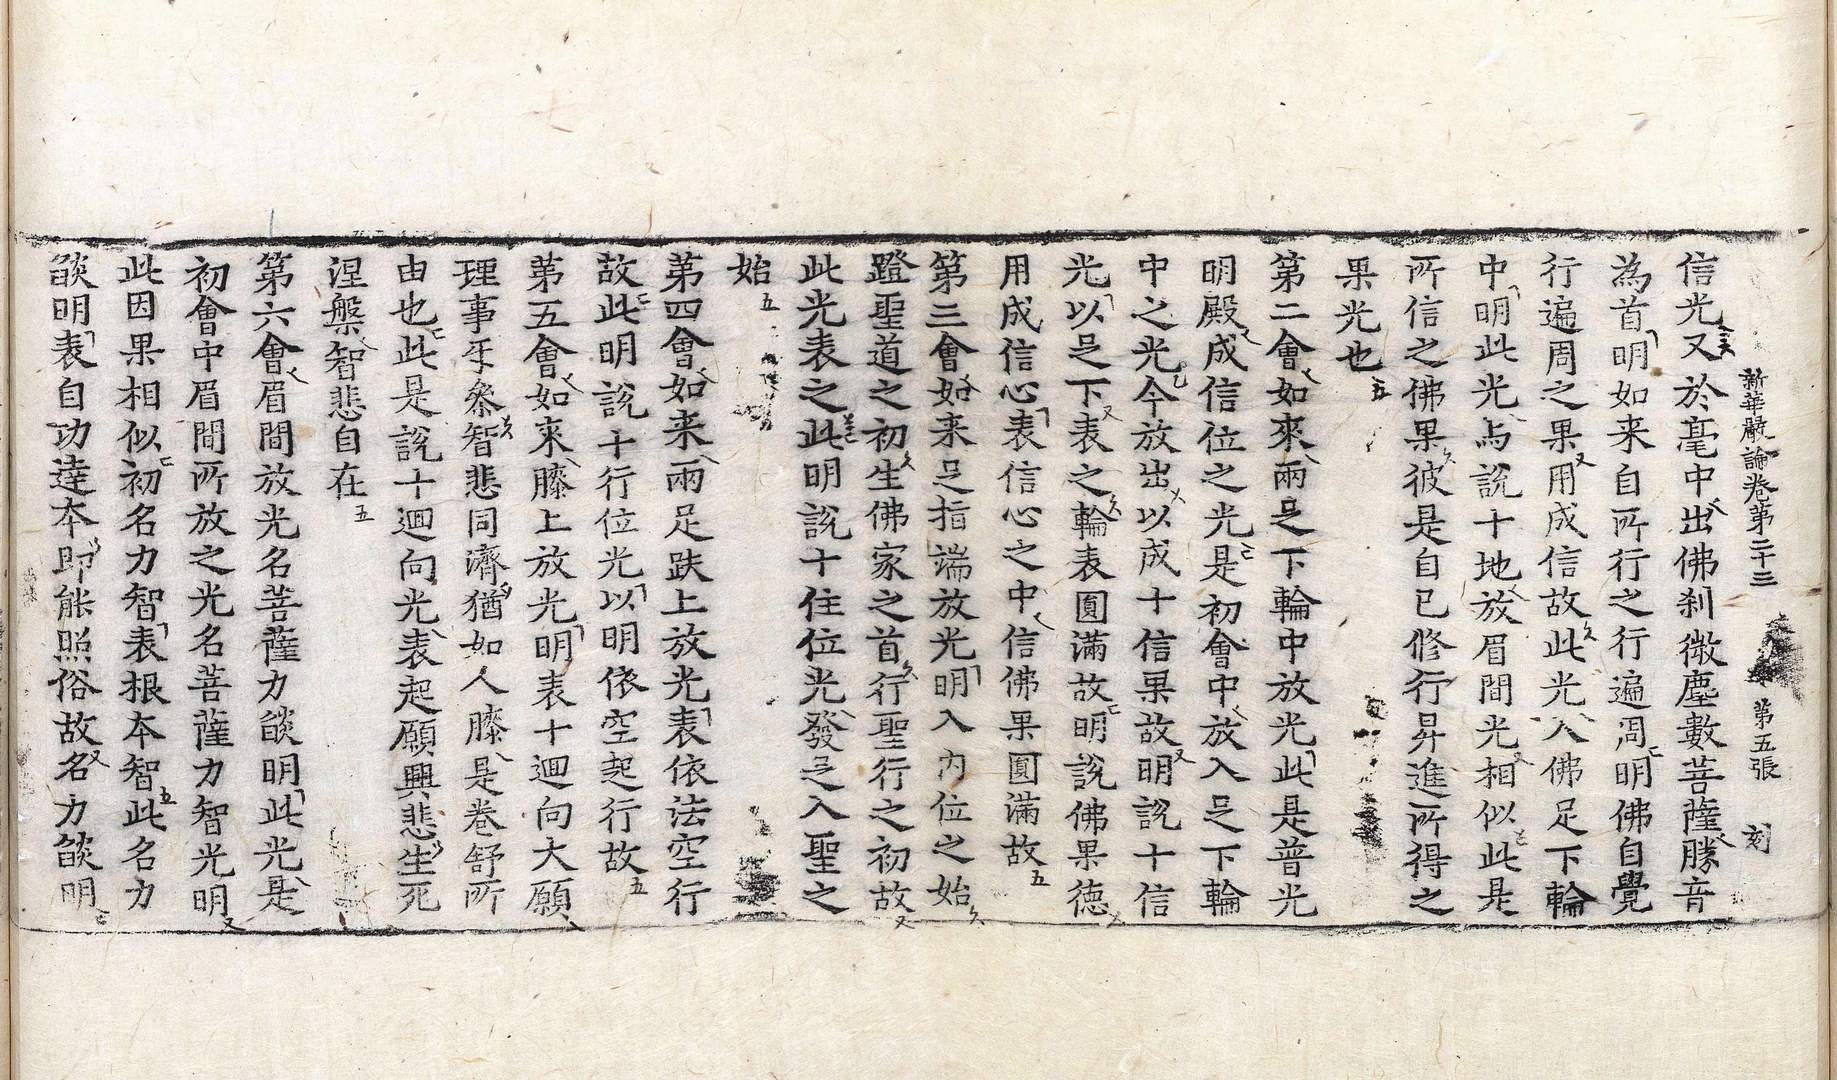 新華嚴論卷第二十三 第五張 刻
信光又於毫中出佛刹微塵數菩薩勝音
為首明如来自所行之行遍周明佛自覺
行遍周之果用成信故此光入佛足下輪
中明此光与說十地放眉間光相似此是
所信之佛果彼是自已修行昇進所得之
果光也
第二會如來兩足下輪中放光此是普光
明殿成信位之光是初會中放入足下輪
中之光今放出以成十信果故明說十信
光以足下表之輪表圓滿故明說佛果德
用成信心表信心之中信佛果圓滿故
第三會如来足指端放光明入內位之始
蹬聖道之初生佛家之首行聖行之初故
此光表之此明說十住位光發足入聖之
始
第四會如来兩足趺上放光表依法空行
故此明說十行位光以明依空起行故
第五會如来膝上放光明表十迴向大願
理事叅智悲同濟猶如人膝是卷舒所
由也此是說十迴向光表起願興悲生死
涅槃智悲自在
第六會眉間放光名菩薩力燄明此光是
初會中眉間所放之光名菩薩力智光明
此因果相似初名力智表根本智此名力
燄明表自功達本即能照俗故名力燄明